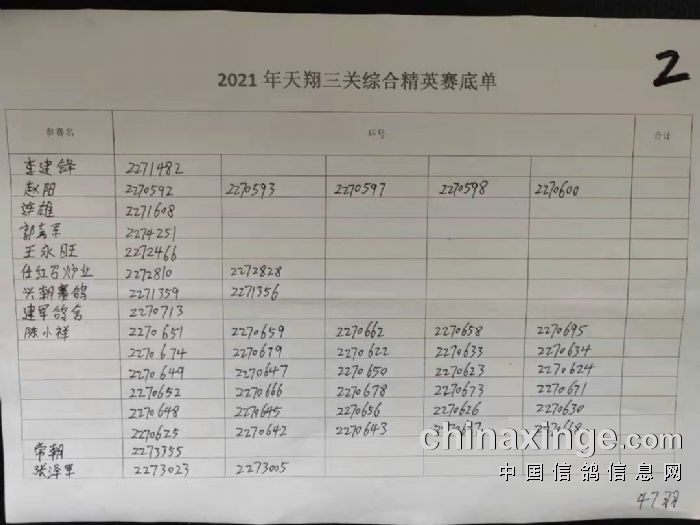 2
2021年天翔三关综合精英赛底单
参赛名 环号 合计
李建锋 2271482
赵阳 2270592 2270593 2270597 2270598 2270600
连雄 2271608
郭喜军 2274251
王永旺 2272466
任红石炉业 2272810 2272828
兴朝赛鸽 2271359 2271356
建军鸽舍 2270713
陈小祥 2270651 2270659 2270662 2270658 2270695
2270674 2270679 2270622 2270633 2270634
2270649 2270647 2270650 2270623 2270624
2270652 2270666 2270678 2270673 2270671
2270648 2270645 2270656 2270626 2270630
2270625 2270642 2270643
常朝 2273355
张泽军 2273023 2273005
chinaxinge.com
中国信鸽信息网
47羽